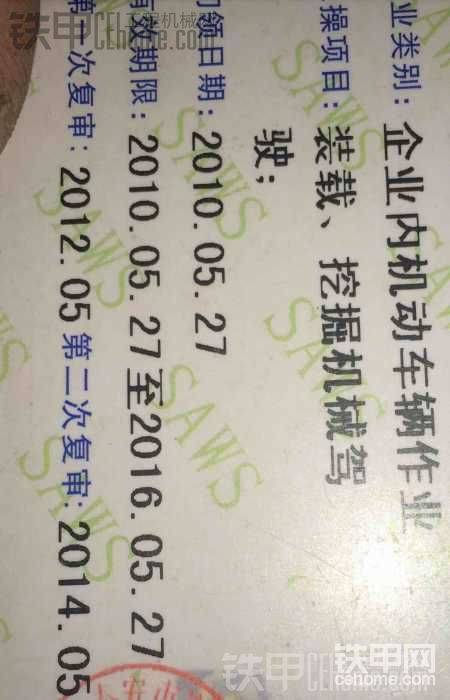 业类别: 企业内机动车辆作业
操项目: 装载、挖掘机械驾
驶;
初领日期: 2010.05.27
有效期限: 2010.05.27至2016.05.27
第一次复审: 2012.05 第二次复审: 2014.05
SAWS
SAWS
SAWS
SAWS
SAWS
SAWS
SAWS
铁甲 工程机械
CEhome.com
铁甲
CEhome
铁甲网
cehome.com